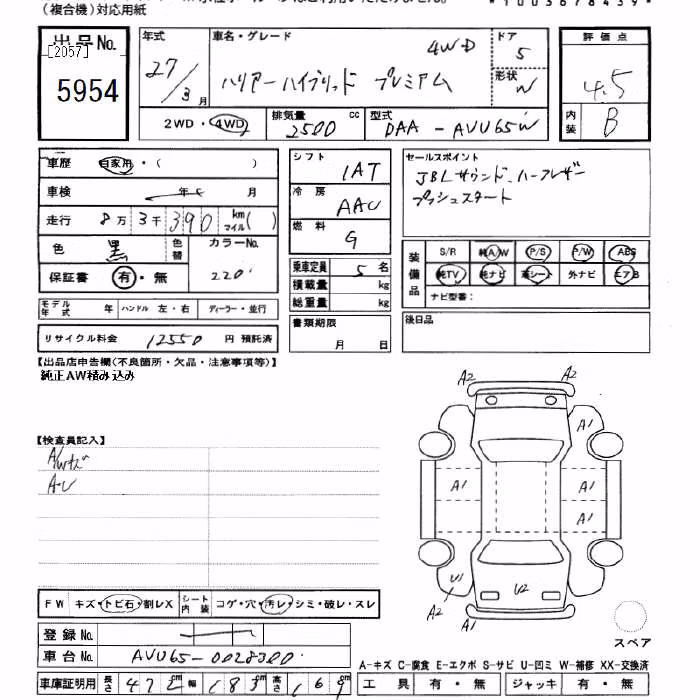 (複合機)対応用紙
*1003678439*
出品No.
[2057]
5954
年式 車名・グレード 4WD ドア 5
27/3月 ハリアーハイブリッド プレミアム 形状 W
評価点
4.5
内装 B
2WD・4WD 排気量 2500 cc 型式 DAA-AVU65W
車歴 自家用・( )
車検 年 月
走行 8万3千390 km マイル( )
色 黒 色替 カラーNo.
保証書 有・無 220
モデル年式 年 ハンドル 左・右 ディーラー・並行
リサイクル料金 12550 円 預託済
シフト 1AT
冷房 AAC
燃料 G
乗車定員 5 名
積載量 kg
総重量 kg
書類期限
月 日
セールスポイント
JBLサウンド、ハーフレザー
プッシュスタート
装備品 S/R 純A/W P/S P/W ABS
純TV 純ナビ 革シート 外ナビ エアB
ナビ型番:
後日品
【出品店申告欄(不良箇所・欠品・注意事項等)】
純正AW積み込み
【検査員記入】
A/Wキズ
A・U
A2 A2
A1
A1 A1
A1
U1 U2
A2 A2
スペア
FW キズ・トビ石・割レX シート内装 コゲ・穴・汚レ・シミ・破レ・スレ
登録No.
車台No. AVU65-0028300
車庫証明用 長さ 472cm 幅 183cm 高さ 169
A-キズ C-腐食 E-エクボ S-サビ U-凹ミ W-補修 XX-交換済
工具 有・無 ジャッキ 有・無